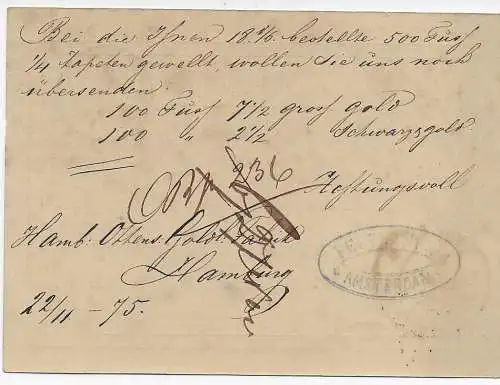 Bei die Ihnen 18 8/6 bestellte 500 Fuß
1/4 Tapeten gewellt, wollen Sie uns noch
übersenden:
100 Fuß 7 1/2 gross gold
100 " 2 1/2 Schwarzgold.
236
Achtungsvoll
Hamb: Ottens. Goldl. Fabrik
Hamburg
22/11 - 75.
AMSTERDAM